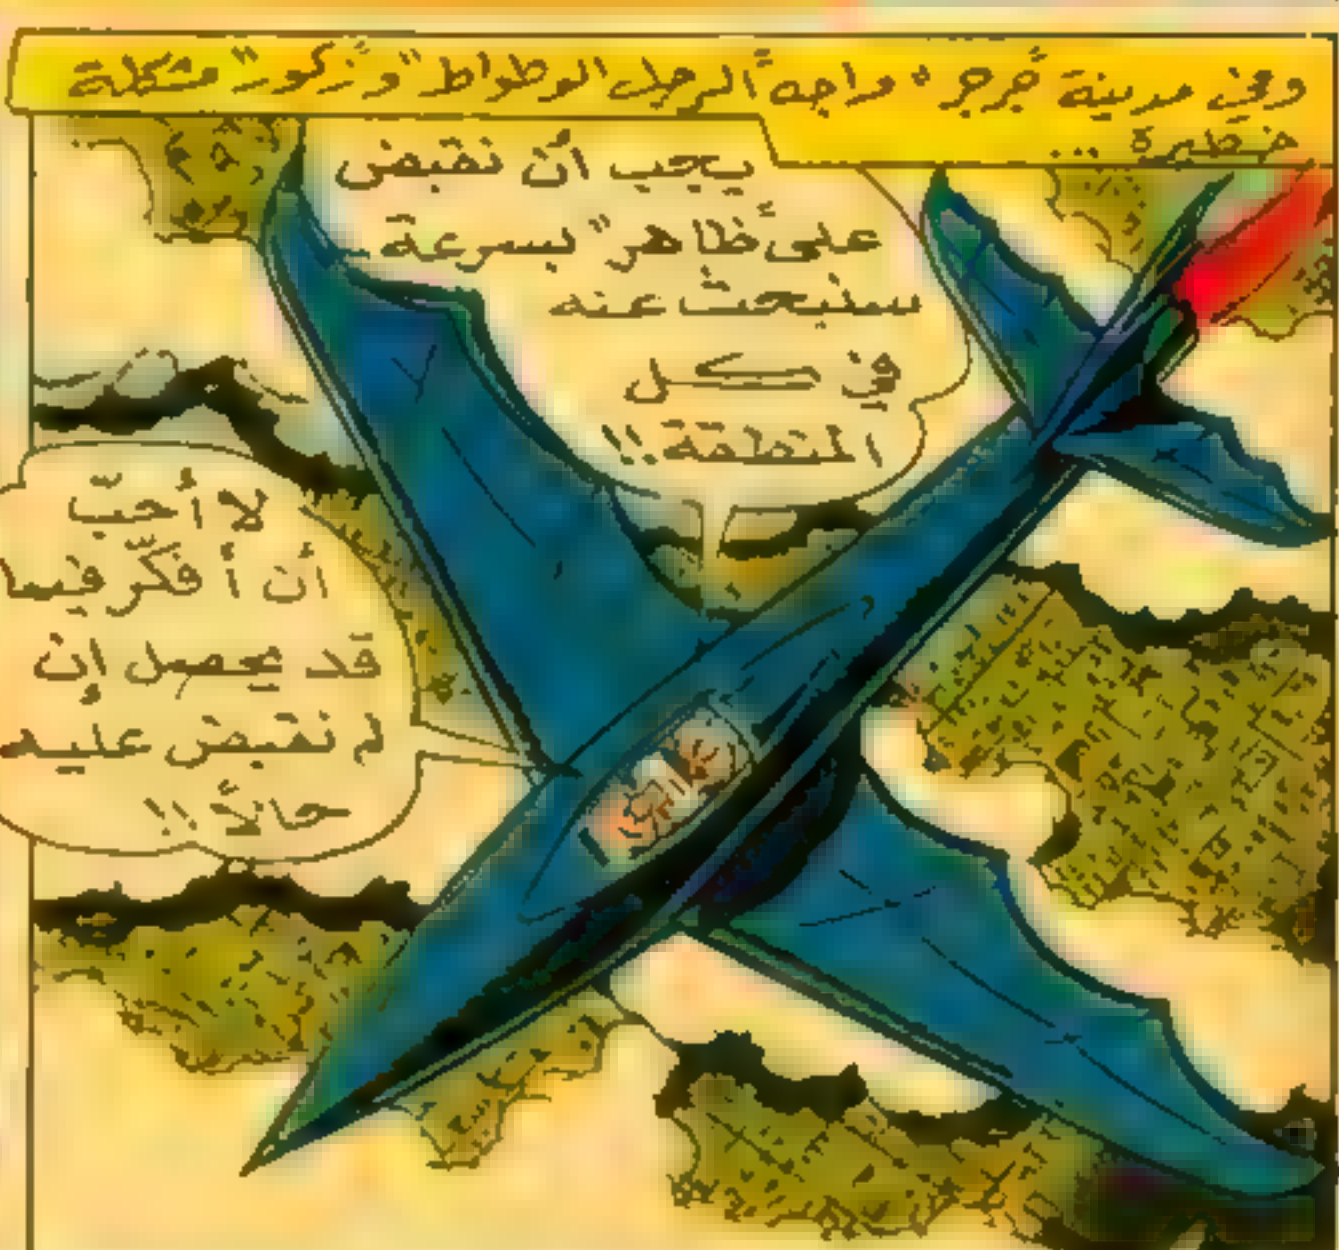 وفي مدينة جُرجر، واجه "الرجل الوطواط" و"زكور" مشكلة
خطيرة ...
يجب أن نقبض
على "ظاهر" بسرعة
سنبحث عنه
في كل
المنطقة!!
لا أحبّ
أن أفكّر فيما
قد يحصل إن
لم نقبض عليه
حالاً!!